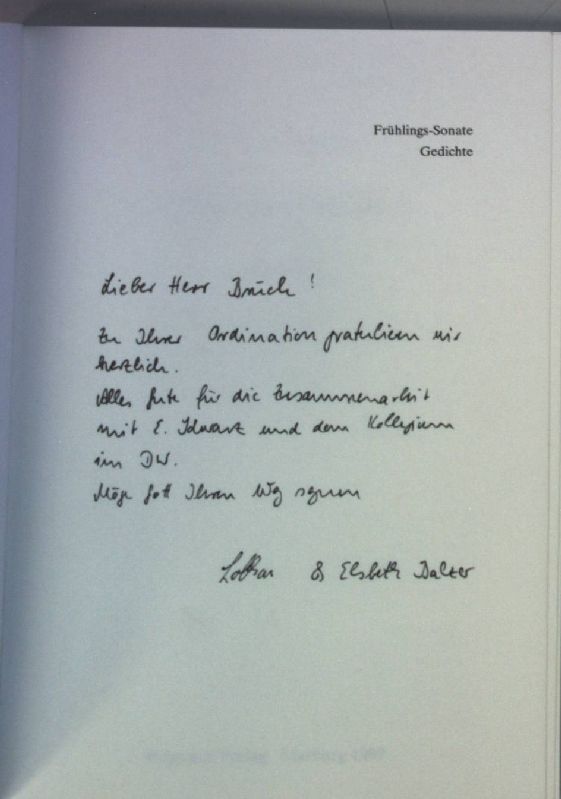 Frühlings-Sonate
Gedichte
Lieber Herr Brüch!
Zu Ihrer Ordination gratulieren wir
herzlich.
Alles Gute für die Zusammenarbeit
mit E. und dem Kollegium
im DW.
Möge Gott Ihren Weg segnen
Lothar & Elsbeth Balzer